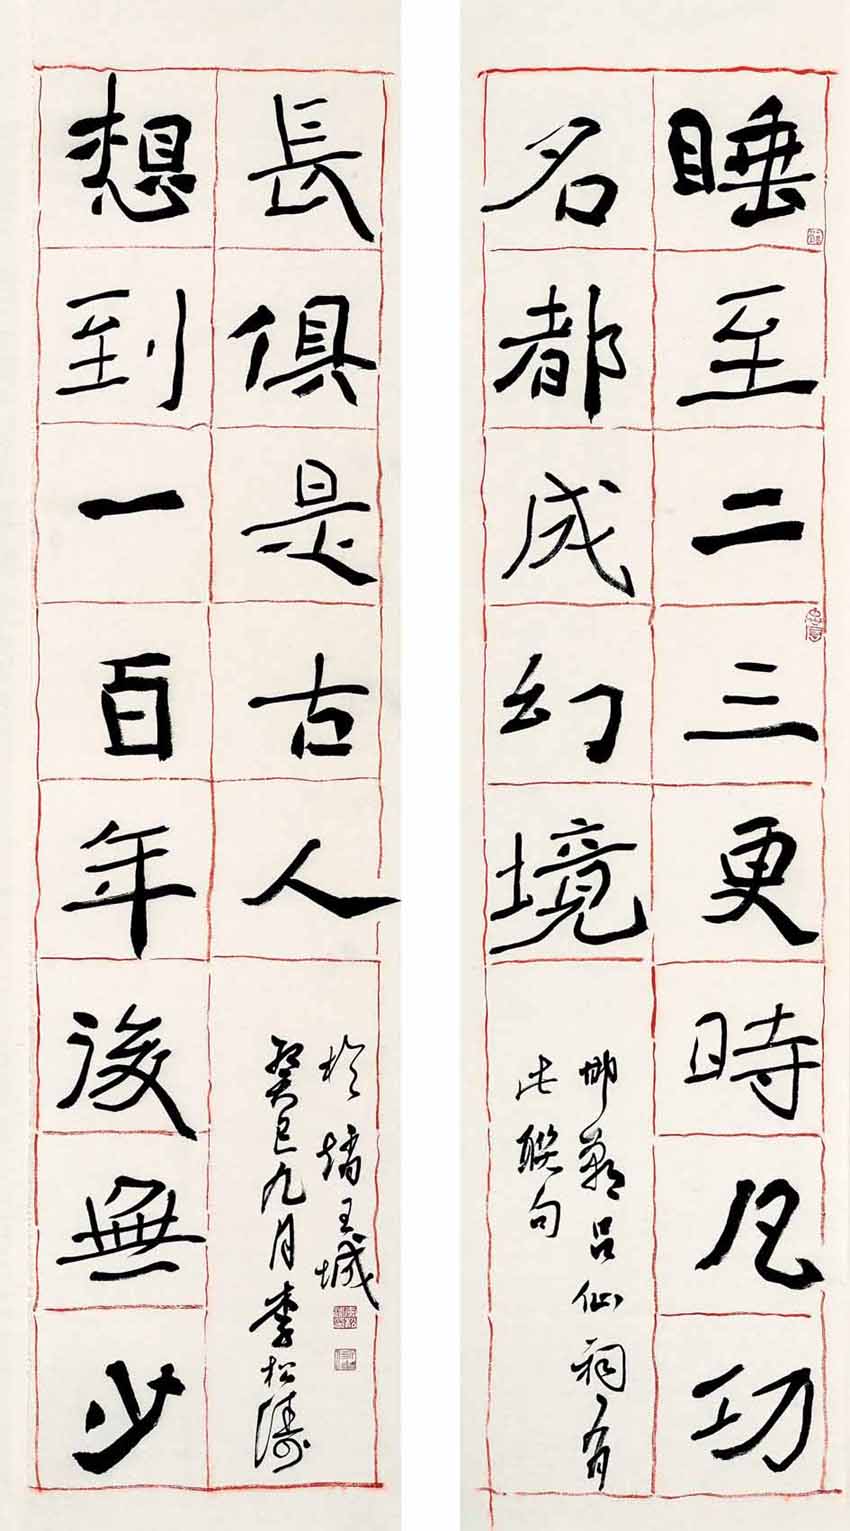 睡至二三更時凡功
名都成幻境
邯鄲呂仙祠有
此聯句
想到一百年後無少
長俱是古人
癸巳九月李松濤
於王城